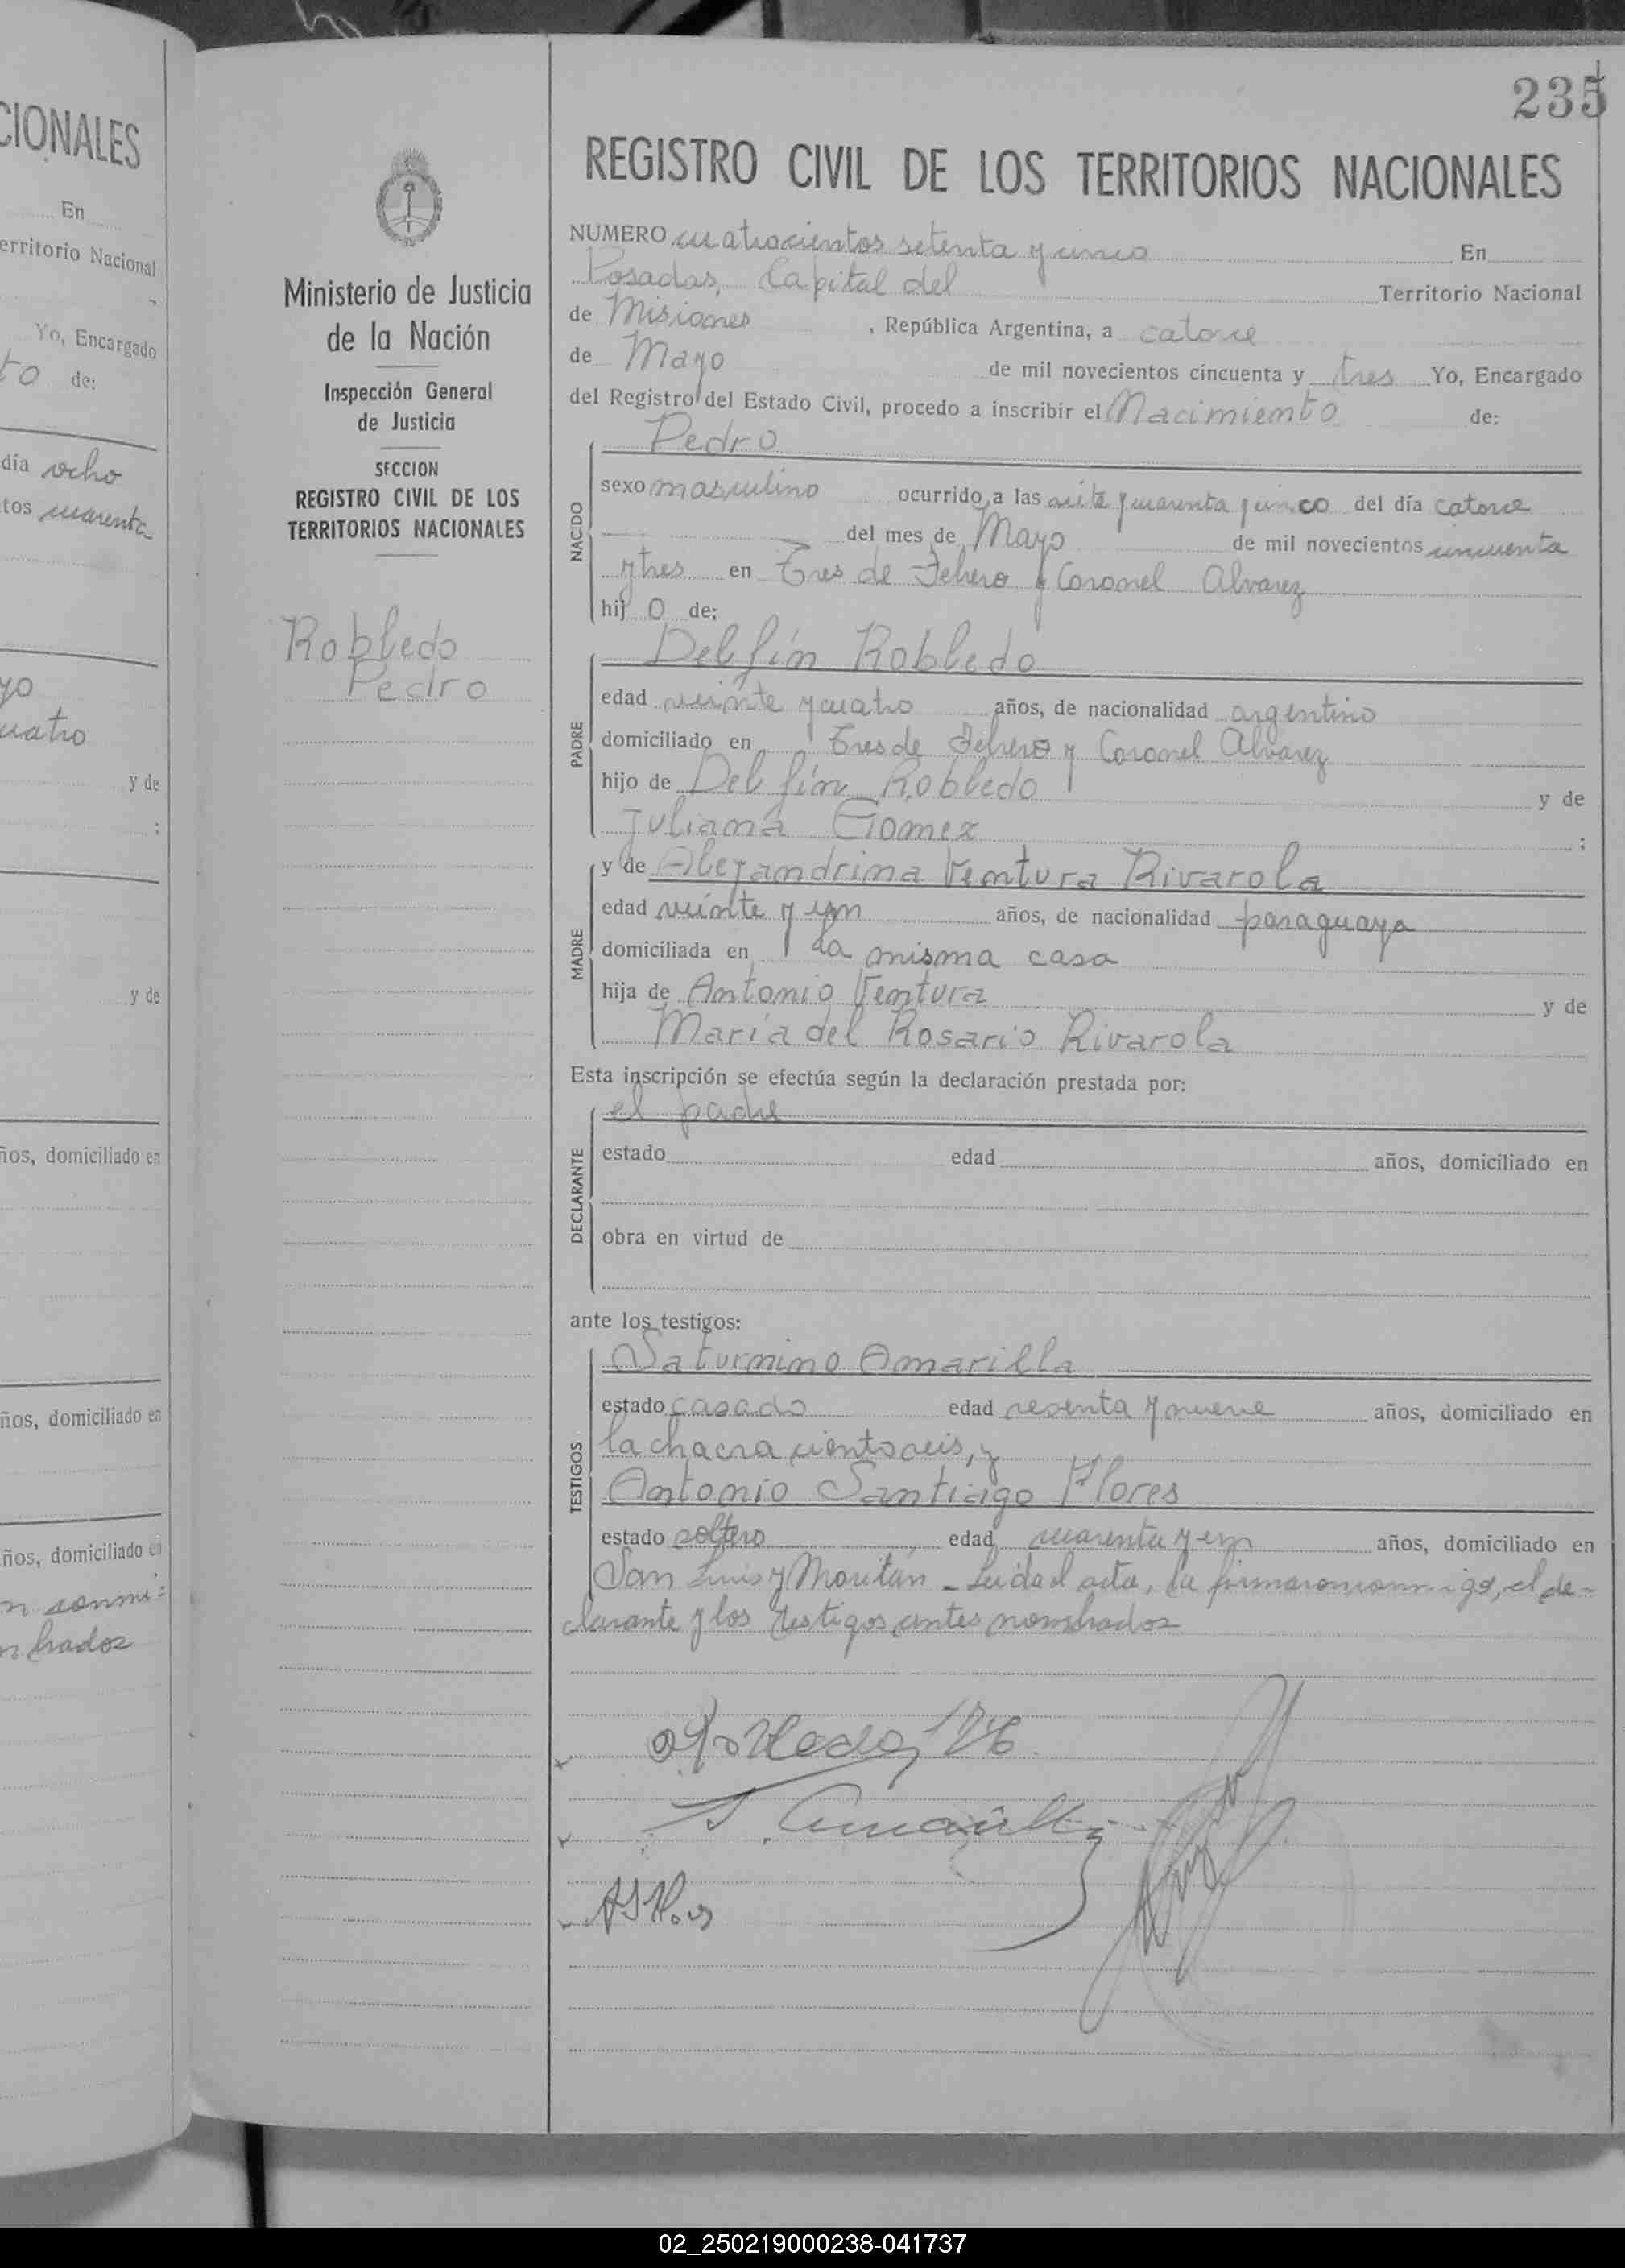 CIONALES
En
erritorio Nacional
Yo, Encargado
to de:
día ocho
tos cuarenta
yo
uatro
y de
;
y de
ños, domiciliado en
ños, domiciliado en
ños, domiciliado en
n conmi=
brados
Ministerio de Justicia
de la Nación
Inspección General
de Justicia
SECCION
REGISTRO CIVIL DE LOS
TERRITORIOS NACIONALES
Robledo
Pedro
235
REGISTRO CIVIL DE LOS TERRITORIOS NACIONALES
NUMERO cuatrocientos setenta y cinco En
Posadas, Capital del Territorio Nacional
de Misiones, República Argentina, a catorce
de Mayo de mil novecientos cincuenta y tres Yo, Encargado
del Registro del Estado Civil, procedo a inscribir el Nacimiento de:
Pedro
NACIDO
sexo masculino ocurrido a las siete y cuarenta y cinco del día catorce
del mes de Mayo de mil novecientos cincuenta
y tres en Tres de Febrero y Coronel Alvarez
hijo de:
Delfín Robledo
PADRE
edad veinte y cuatro años, de nacionalidad argentino
domiciliado en Tres de Febrero y Coronel Alvarez
hijo de Delfín Robledo y de
Juliana Gomez ;
MADRE
y de Alejandrina Ventura Rivarola
edad veinte y un años, de nacionalidad paraguaya
domiciliada en la misma casa
hija de Antonio Ventura y de
María del Rosario Rivarola
Esta inscripción se efectúa según la declaración prestada por:
el padre
DECLARANTE
estado edad años, domiciliado en
obra en virtud de
ante los testigos:
TESTIGOS
Saturnino Amarilla
estado casado edad sesenta y nueve años, domiciliado en
la chacra ciento seis, y
Antonio Santiago Flores
estado soltero edad cuarenta y un años, domiciliado en
San Luis y Moritán - Leida el acta, la firmaron conmigo, el de=
clarante y los testigos antes nombrados
Robledo
S. Amarilla
02_250219000238-041737